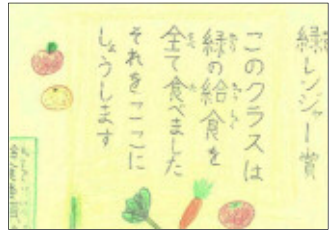 緑レンジャー賞
このクラスは
緑の給食を
全て食べました
それをここに
しょうします